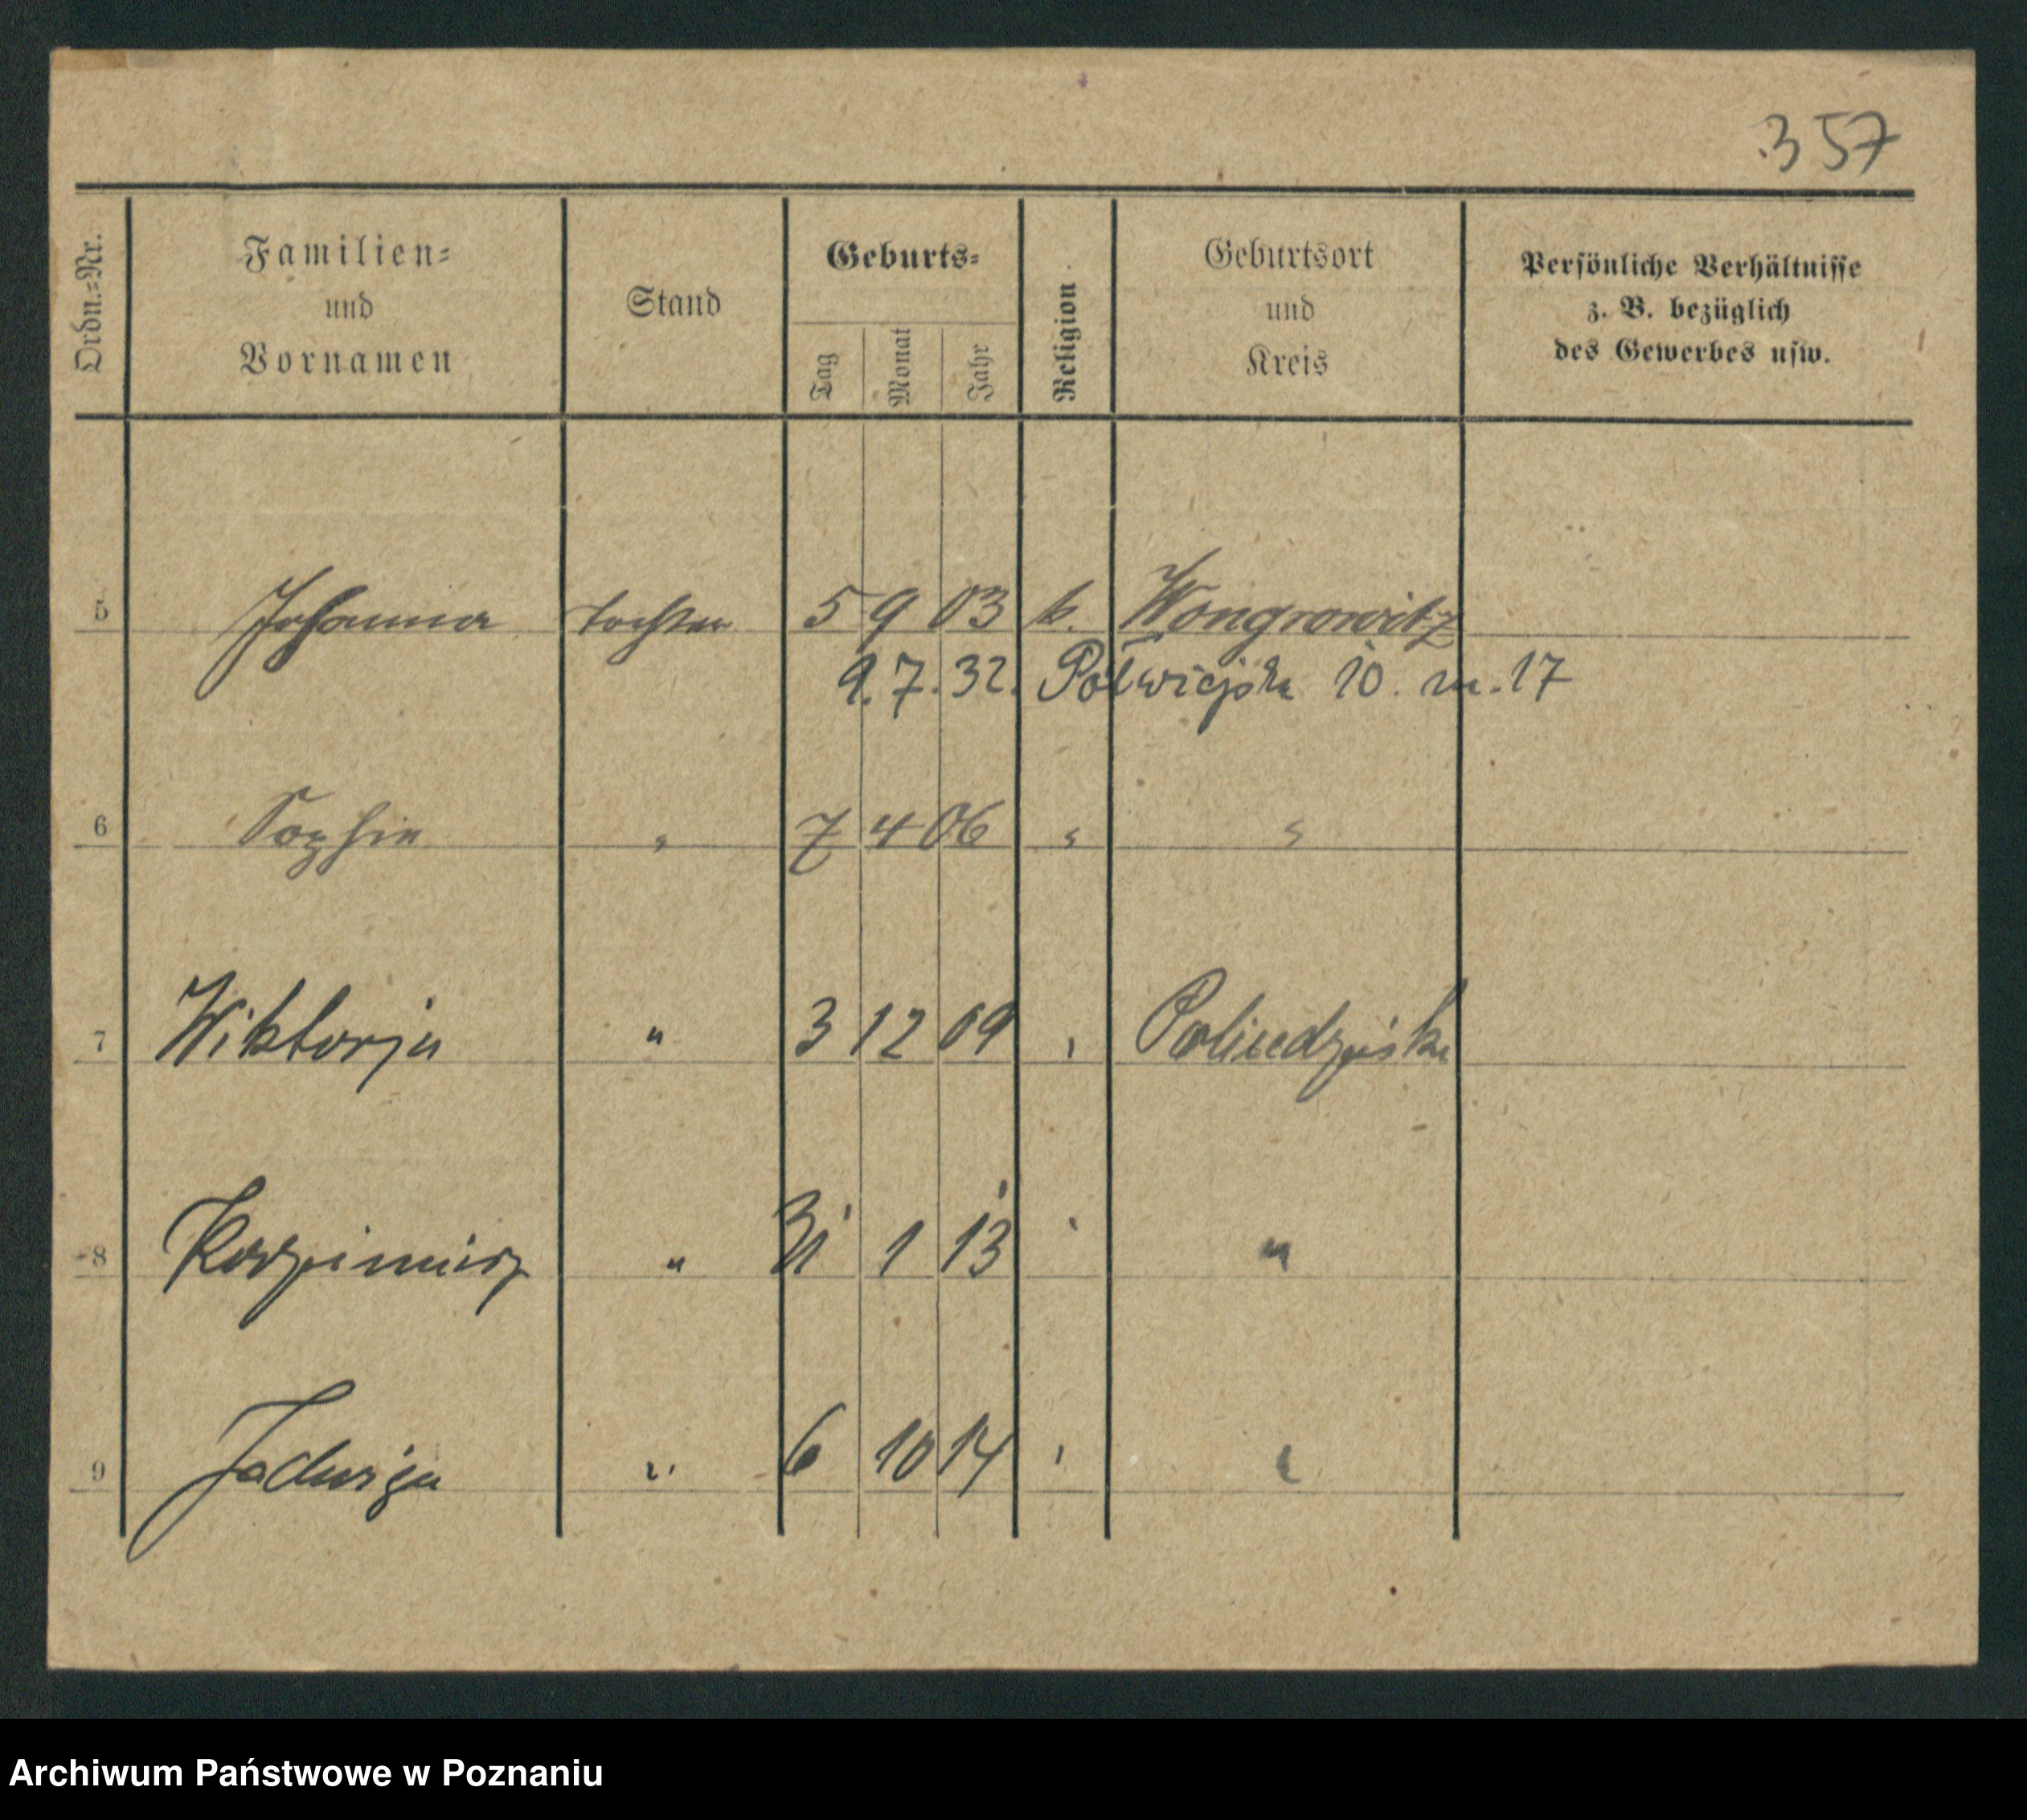 357
Ordn.-Nr. Familien- und Vornamen Stand Geburts- Tag Monat Jahr Religion Geburtsort und Kreis Persönliche Verhältnisse z. B. bezüglich des Gewerbes usw.
5 Johanna Tochter 5 9 03 k. Wongrowitz
9.7.32. Półwiejska 10. m. 17
6 Sophie " 7 4 06 " "
7 Wiktorja " 3 12 09 "
8 Kazimierz " 31 1 13 " "
9 Jadwiga " 6 10 14 " "
Archiwum Państwowe w Poznaniu